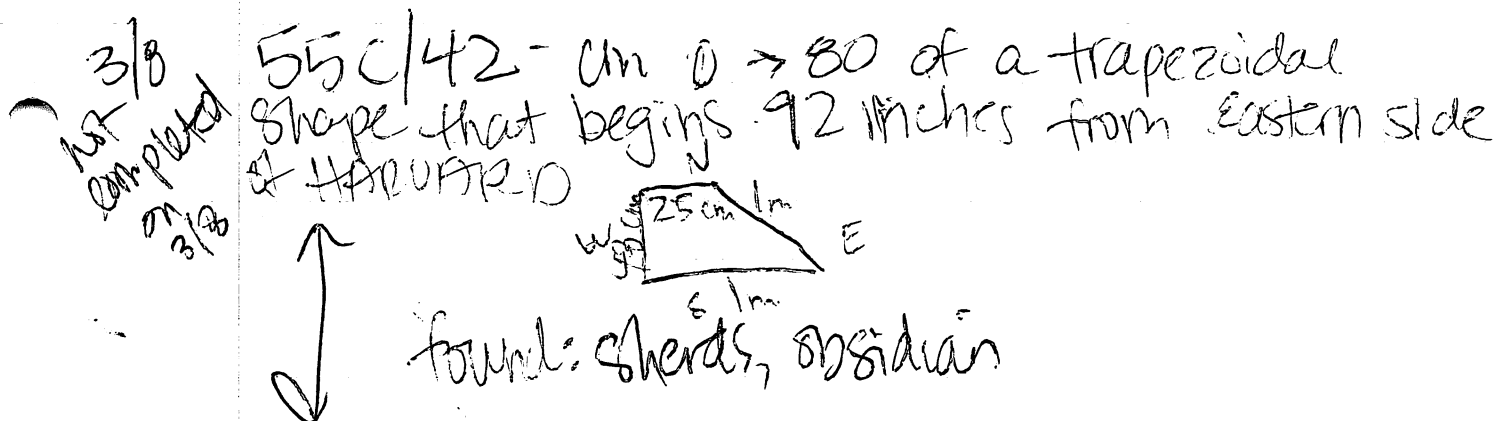 3/8
Not
completed
on
3/8
55C/42- cm 0 → 80 of a trapezoidal
shape that begins 92 inches from Eastern side
of HARVARD
N
25 cm 1m
W
E
S 1m
found: sherds, obsidian